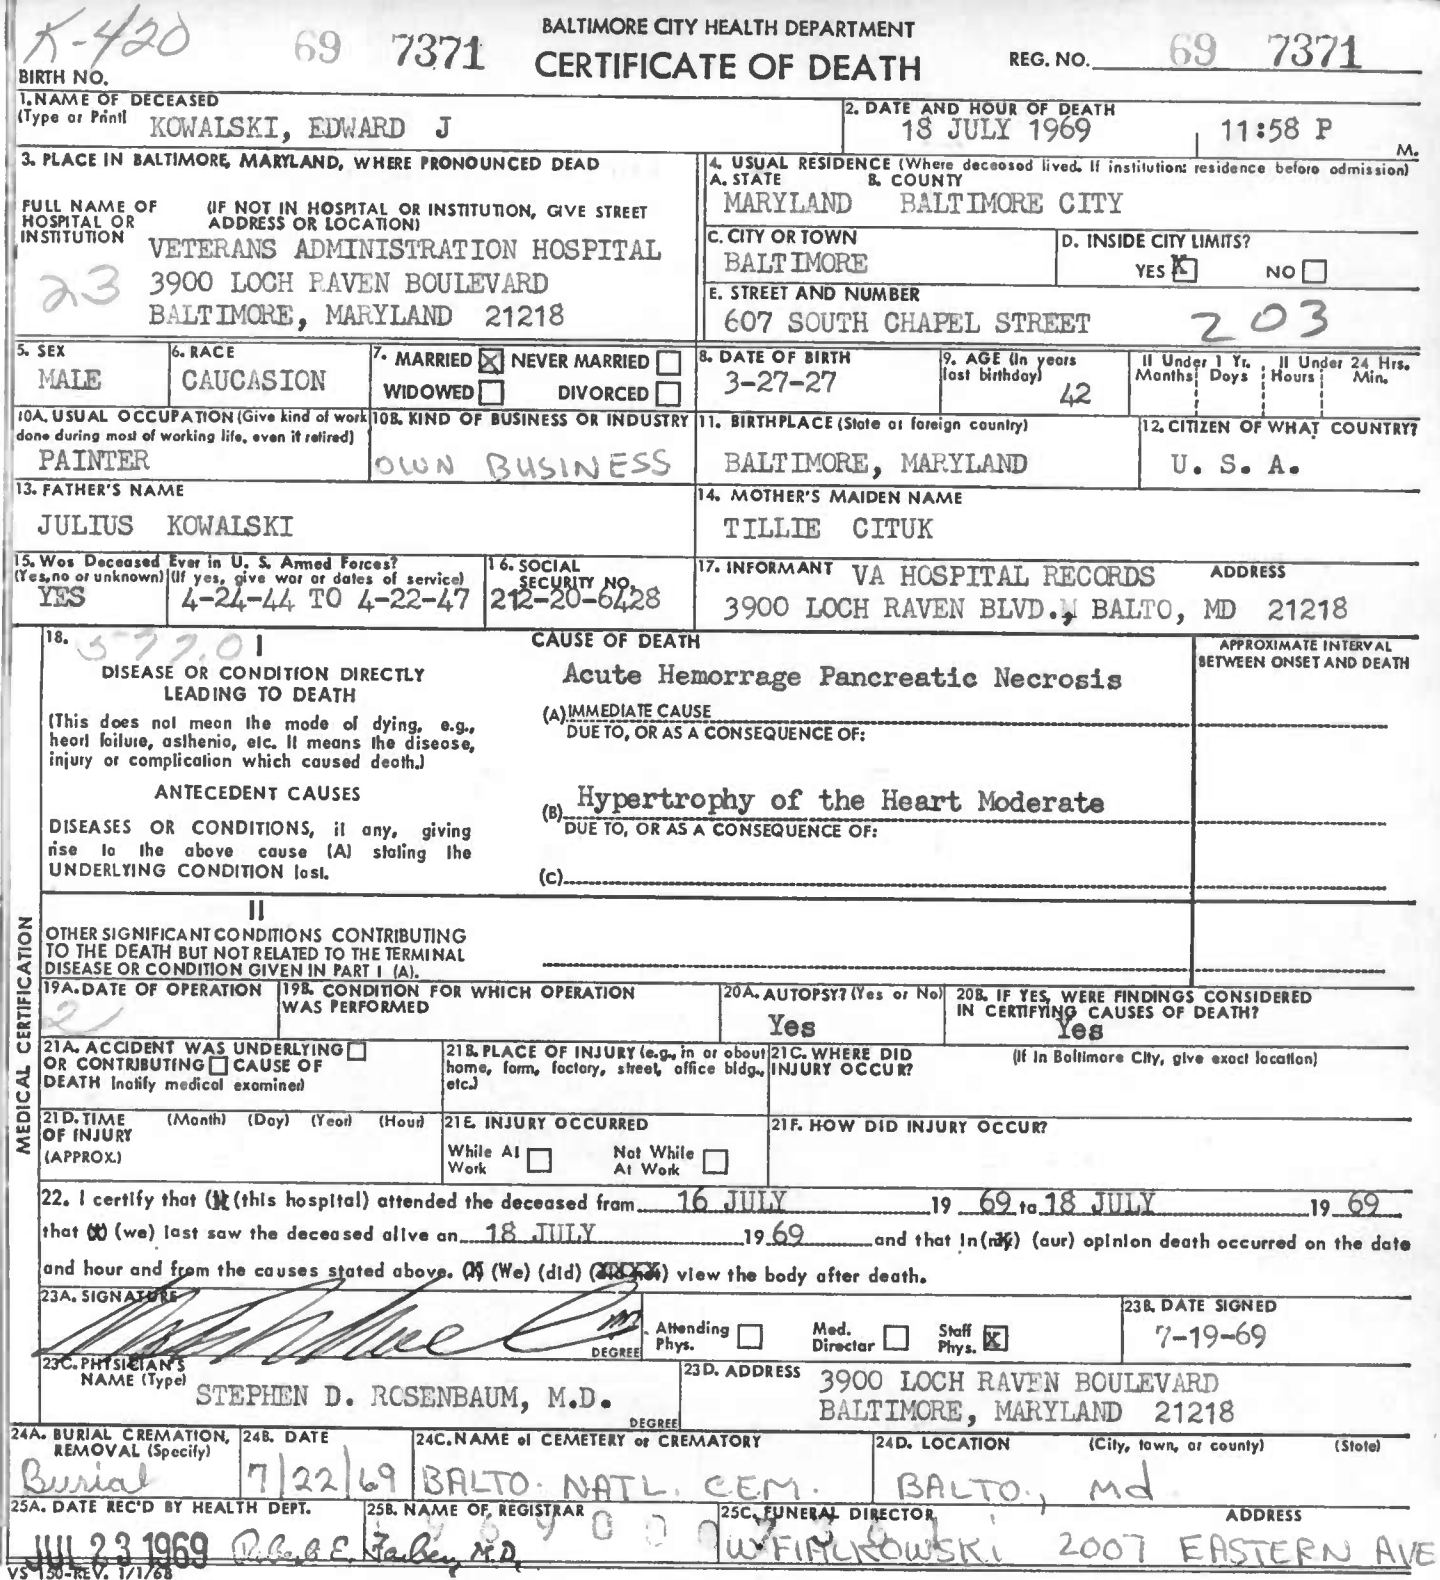 K-420
BALTIMORE CITY HEALTH DEPARTMENT
69 7371
CERTIFICATE OF DEATH
REG. NO. 69 7371
BIRTH NO.
1. NAME OF DECEASED
(Type or Print) KOWALSKI, EDWARD J
2. DATE AND HOUR OF DEATH
18 JULY 1969 11:58 P M.
3. PLACE IN BALTIMORE, MARYLAND, WHERE PRONOUNCED DEAD
4. USUAL RESIDENCE (Where deceased lived. If institution: residence before admission)
A. STATE B. COUNTY
MARYLAND BALTIMORE CITY
FULL NAME OF HOSPITAL OR INSTITUTION
(IF NOT IN HOSPITAL OR INSTITUTION, GIVE STREET ADDRESS OR LOCATION)
VETERANS ADMINISTRATION HOSPITAL
3900 LOCH RAVEN BOULEVARD
BALTIMORE, MARYLAND 21218
23
C. CITY OR TOWN
BALTIMORE
D. INSIDE CITY LIMITS?
YES X NO
E. STREET AND NUMBER
607 SOUTH CHAPEL STREET 203
5. SEX
MALE
6. RACE
CAUCASION
7. MARRIED X NEVER MARRIED
WIDOWED DIVORCED
8. DATE OF BIRTH
3-27-27
9. AGE (In years last birthday)
42
If Under 1 Yr. If Under 24 Hrs.
Months Days Hours Min.
10A. USUAL OCCUPATION (Give kind of work
done during most of working life, even if retired)
PAINTER
10B. KIND OF BUSINESS OR INDUSTRY
OWN BUSINESS
11. BIRTHPLACE (State or foreign country)
BALTIMORE, MARYLAND
12. CITIZEN OF WHAT COUNTRY?
U. S. A.
13. FATHER'S NAME
JULIUS KOWALSKI
14. MOTHER'S MAIDEN NAME
TILLIE CITUK
15. Was Deceased Ever in U. S. Armed Forces?
(Yes, no or unknown) (If yes, give war or dates of service)
YES 4-24-44 TO 4-22-47
16. SOCIAL SECURITY NO.
212-20-6428
17. INFORMANT VA HOSPITAL RECORDS ADDRESS
3900 LOCH RAVEN BLVD., BALTO, MD 21218
MEDICAL CERTIFICATION
18. 577.0 I
CAUSE OF DEATH
APPROXIMATE INTERVAL
BETWEEN ONSET AND DEATH
DISEASE OR CONDITION DIRECTLY
LEADING TO DEATH
(This does not mean the mode of dying, e.g.,
heart failure, asthenia, etc. It means the disease,
injury or complication which caused death.)
Acute Hemorrage Pancreatic Necrosis
(A) IMMEDIATE CAUSE
DUE TO, OR AS A CONSEQUENCE OF:
ANTECEDENT CAUSES
DISEASES OR CONDITIONS, if any, giving
rise to the above cause (A) stating the
UNDERLYING CONDITION last.
(B) Hypertrophy of the Heart Moderate
DUE TO, OR AS A CONSEQUENCE OF:
(C)
II
OTHER SIGNIFICANT CONDITIONS CONTRIBUTING
TO THE DEATH BUT NOT RELATED TO THE TERMINAL
DISEASE OR CONDITION GIVEN IN PART I (A).
19A. DATE OF OPERATION
2
19B. CONDITION FOR WHICH OPERATION
WAS PERFORMED
20A. AUTOPSY? (Yes or No)
Yes
20B. IF YES, WERE FINDINGS CONSIDERED
IN CERTIFYING CAUSES OF DEATH?
Yes
21A. ACCIDENT WAS UNDERLYING
OR CONTRIBUTING CAUSE OF
DEATH (notify medical examiner)
21B. PLACE OF INJURY (e.g., in or about
home, farm, factory, street, office bldg.,
etc.)
21C. WHERE DID (If in Baltimore City, give exact location)
INJURY OCCUR?
21D. TIME (Month) (Day) (Year) (Hour)
OF INJURY
(APPROX.)
21E. INJURY OCCURRED
While At Work Not While At Work
21F. HOW DID INJURY OCCUR?
22. I certify that (X) (this hospital) attended the deceased from 16 JULY 19 69 to 18 JULY 19 69
that (X) (we) last saw the deceased alive on 18 JULY 19 69 and that in (my) (our) opinion death occurred on the date
and hour and from the causes stated above. (X) (We) (did) (did not) view the body after death.
23A. SIGNATURE
DEGREE
Attending Phys. Med. Director Staff Phys. X
23B. DATE SIGNED
7-19-69
23C. PHYSICIAN'S
NAME (Type) STEPHEN D. ROSENBAUM, M.D.
DEGREE
23D. ADDRESS 3900 LOCH RAVEN BOULEVARD
BALTIMORE, MARYLAND 21218
24A. BURIAL CREMATION,
REMOVAL (Specify)
Burial
24B. DATE
7/22/69
24C. NAME of CEMETERY or CREMATORY
BALTO. NATL. CEM.
24D. LOCATION (City, town, or county) (State)
BALTO., Md
25A. DATE REC'D BY HEALTH DEPT.
JUL 23 1969
25B. NAME OF REGISTRAR
Robert E. Farber, M.D.
25C. FUNERAL DIRECTOR ADDRESS
W FIALKOWSKI 2007 EASTERN AVE
VS 150-REV. 1/1/68